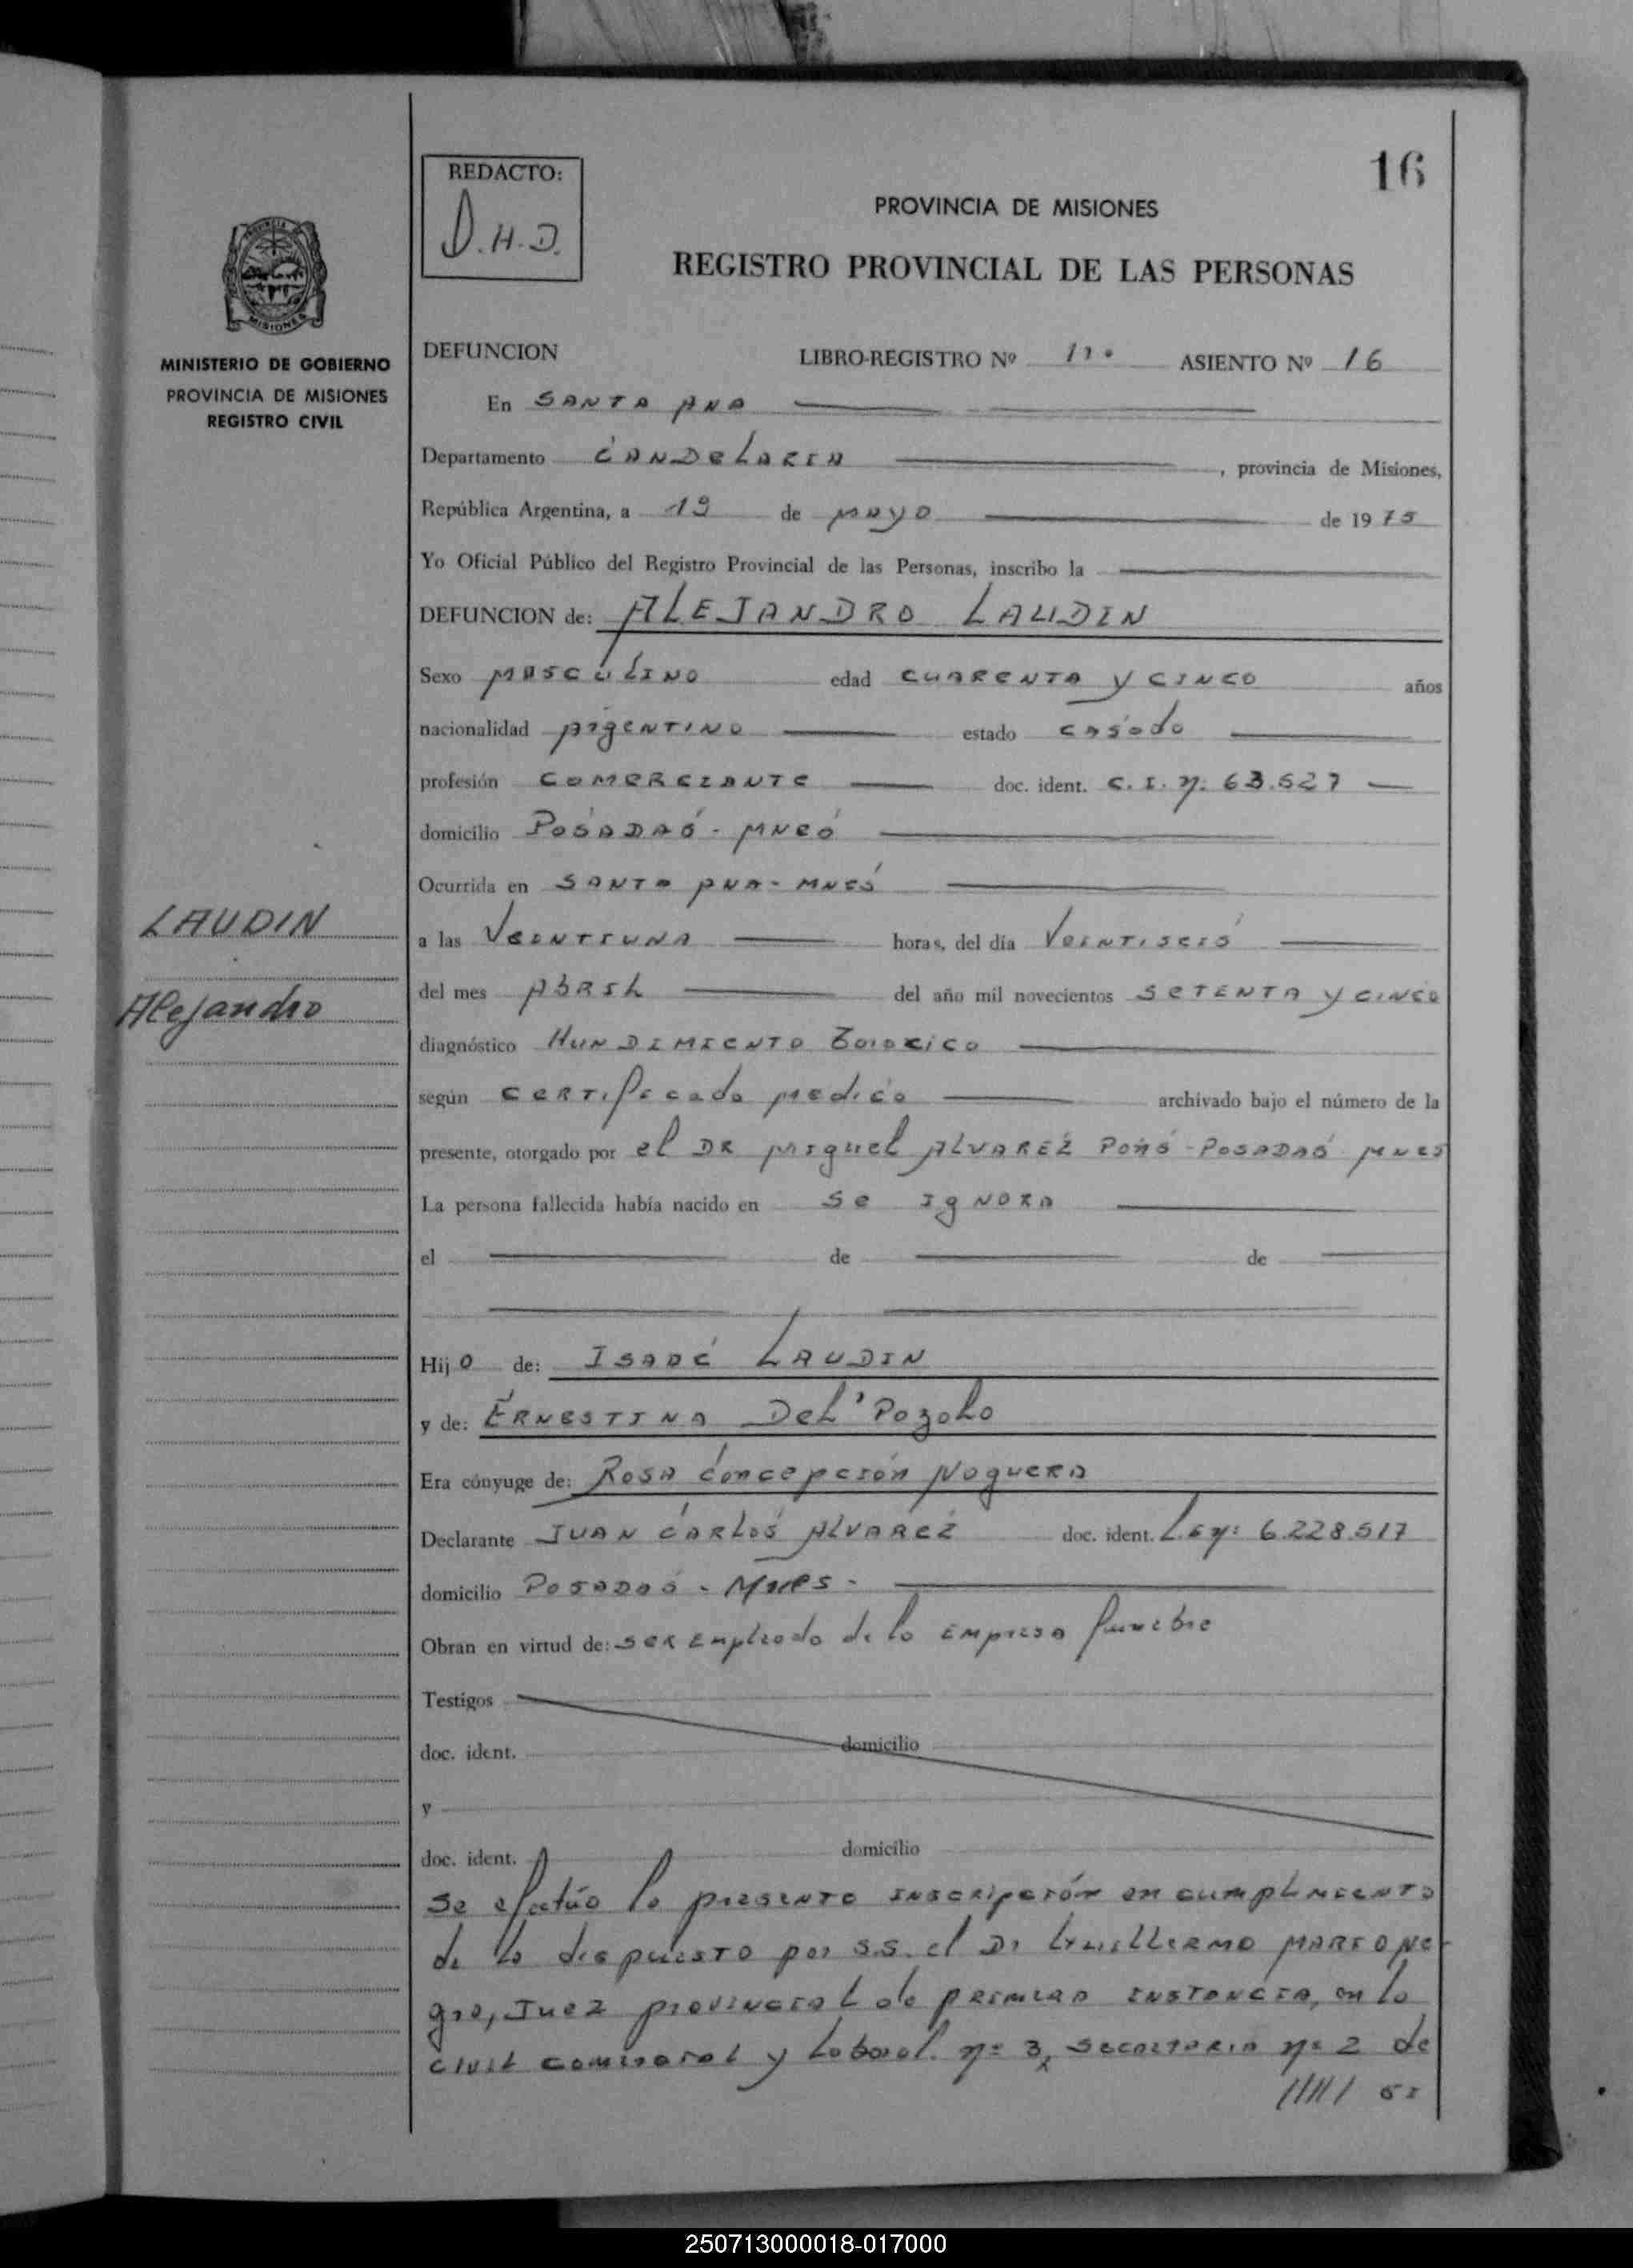 16
REDACTO:
D.H.D.
PROVINCIA DE MISIONES
REGISTRO PROVINCIAL DE LAS PERSONAS
MISIONES
MINISTERIO DE GOBIERNO
PROVINCIA DE MISIONES
REGISTRO CIVIL
DEFUNCION LIBRO-REGISTRO Nº ASIENTO Nº 16
En SANTA ANA
Departamento CANDELARIA, provincia de Misiones,
República Argentina, a 19 de MAYO de 1975
Yo Oficial Público del Registro Provincial de las Personas, inscribo la
DEFUNCION de: ALEJANDRO LAUDIN
Sexo MASCULINO edad CUARENTA Y CINCO años
nacionalidad ARGENTINO estado casado
profesión COMERCIANTE doc. ident. C.I. Nº 63.527
domicilio POSADAS - MNES
Ocurrida en SANTA ANA - MNES
LAUDIN
a las VEINTIUNA horas, del día VEINTISEIS
Alejandro
del mes ABRIL del año mil novecientos SETENTA Y CINCO
diagnóstico HUNDIMIENTO TORAXICO
según CERTIFICADO MEDICO archivado bajo el número de la
presente, otorgado por el DR MIGUEL ALVAREZ - POSADAS MNES
La persona fallecida había nacido en SE IGNORA
el de de
Hijo de: ISAAC LAUDIN
y de: ERNESTINA DEL'POZOLO
Era cónyuge de: ROSA CONCEPCIÓN NOGUERA
Declarante JUAN CARLOS ALVAREZ doc. ident. L.E Nº 6.228.517
domicilio POSADAS - MNES -
Obran en virtud de: SER EMPLEADO de la EMPRESA funebre
Testigos
doc. ident. domicilio
y
doc. ident. domicilio
Se efectúa la presente inscripción en cumplimiento
de lo dispuesto por S.S. el Dr Guillermo MARIO NE-
gro, Juez provincial de PRIMERA INSTANCIA, en lo
CIVIL comercial y Laboral. nº 3, SECRETARIA nº 2 de
/////
250713000018-017000